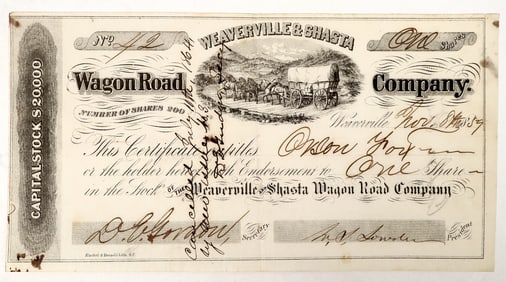 No. 42
WEAVERVILLE & SHASTA
One Shares
Wagon Road Company.
NUMBER OF SHARES 200
CAPITAL STOCK $20.000
Weaverville Nov. 1859
This Certificate Entitles Orson Fox
or the holder hereof with Endorsement to One Share
in the Stock OF THE Weaverville and Shasta Wagon Road Company
Cancelled July 64
by
D. C. Gordon, Secretary
Lowden President